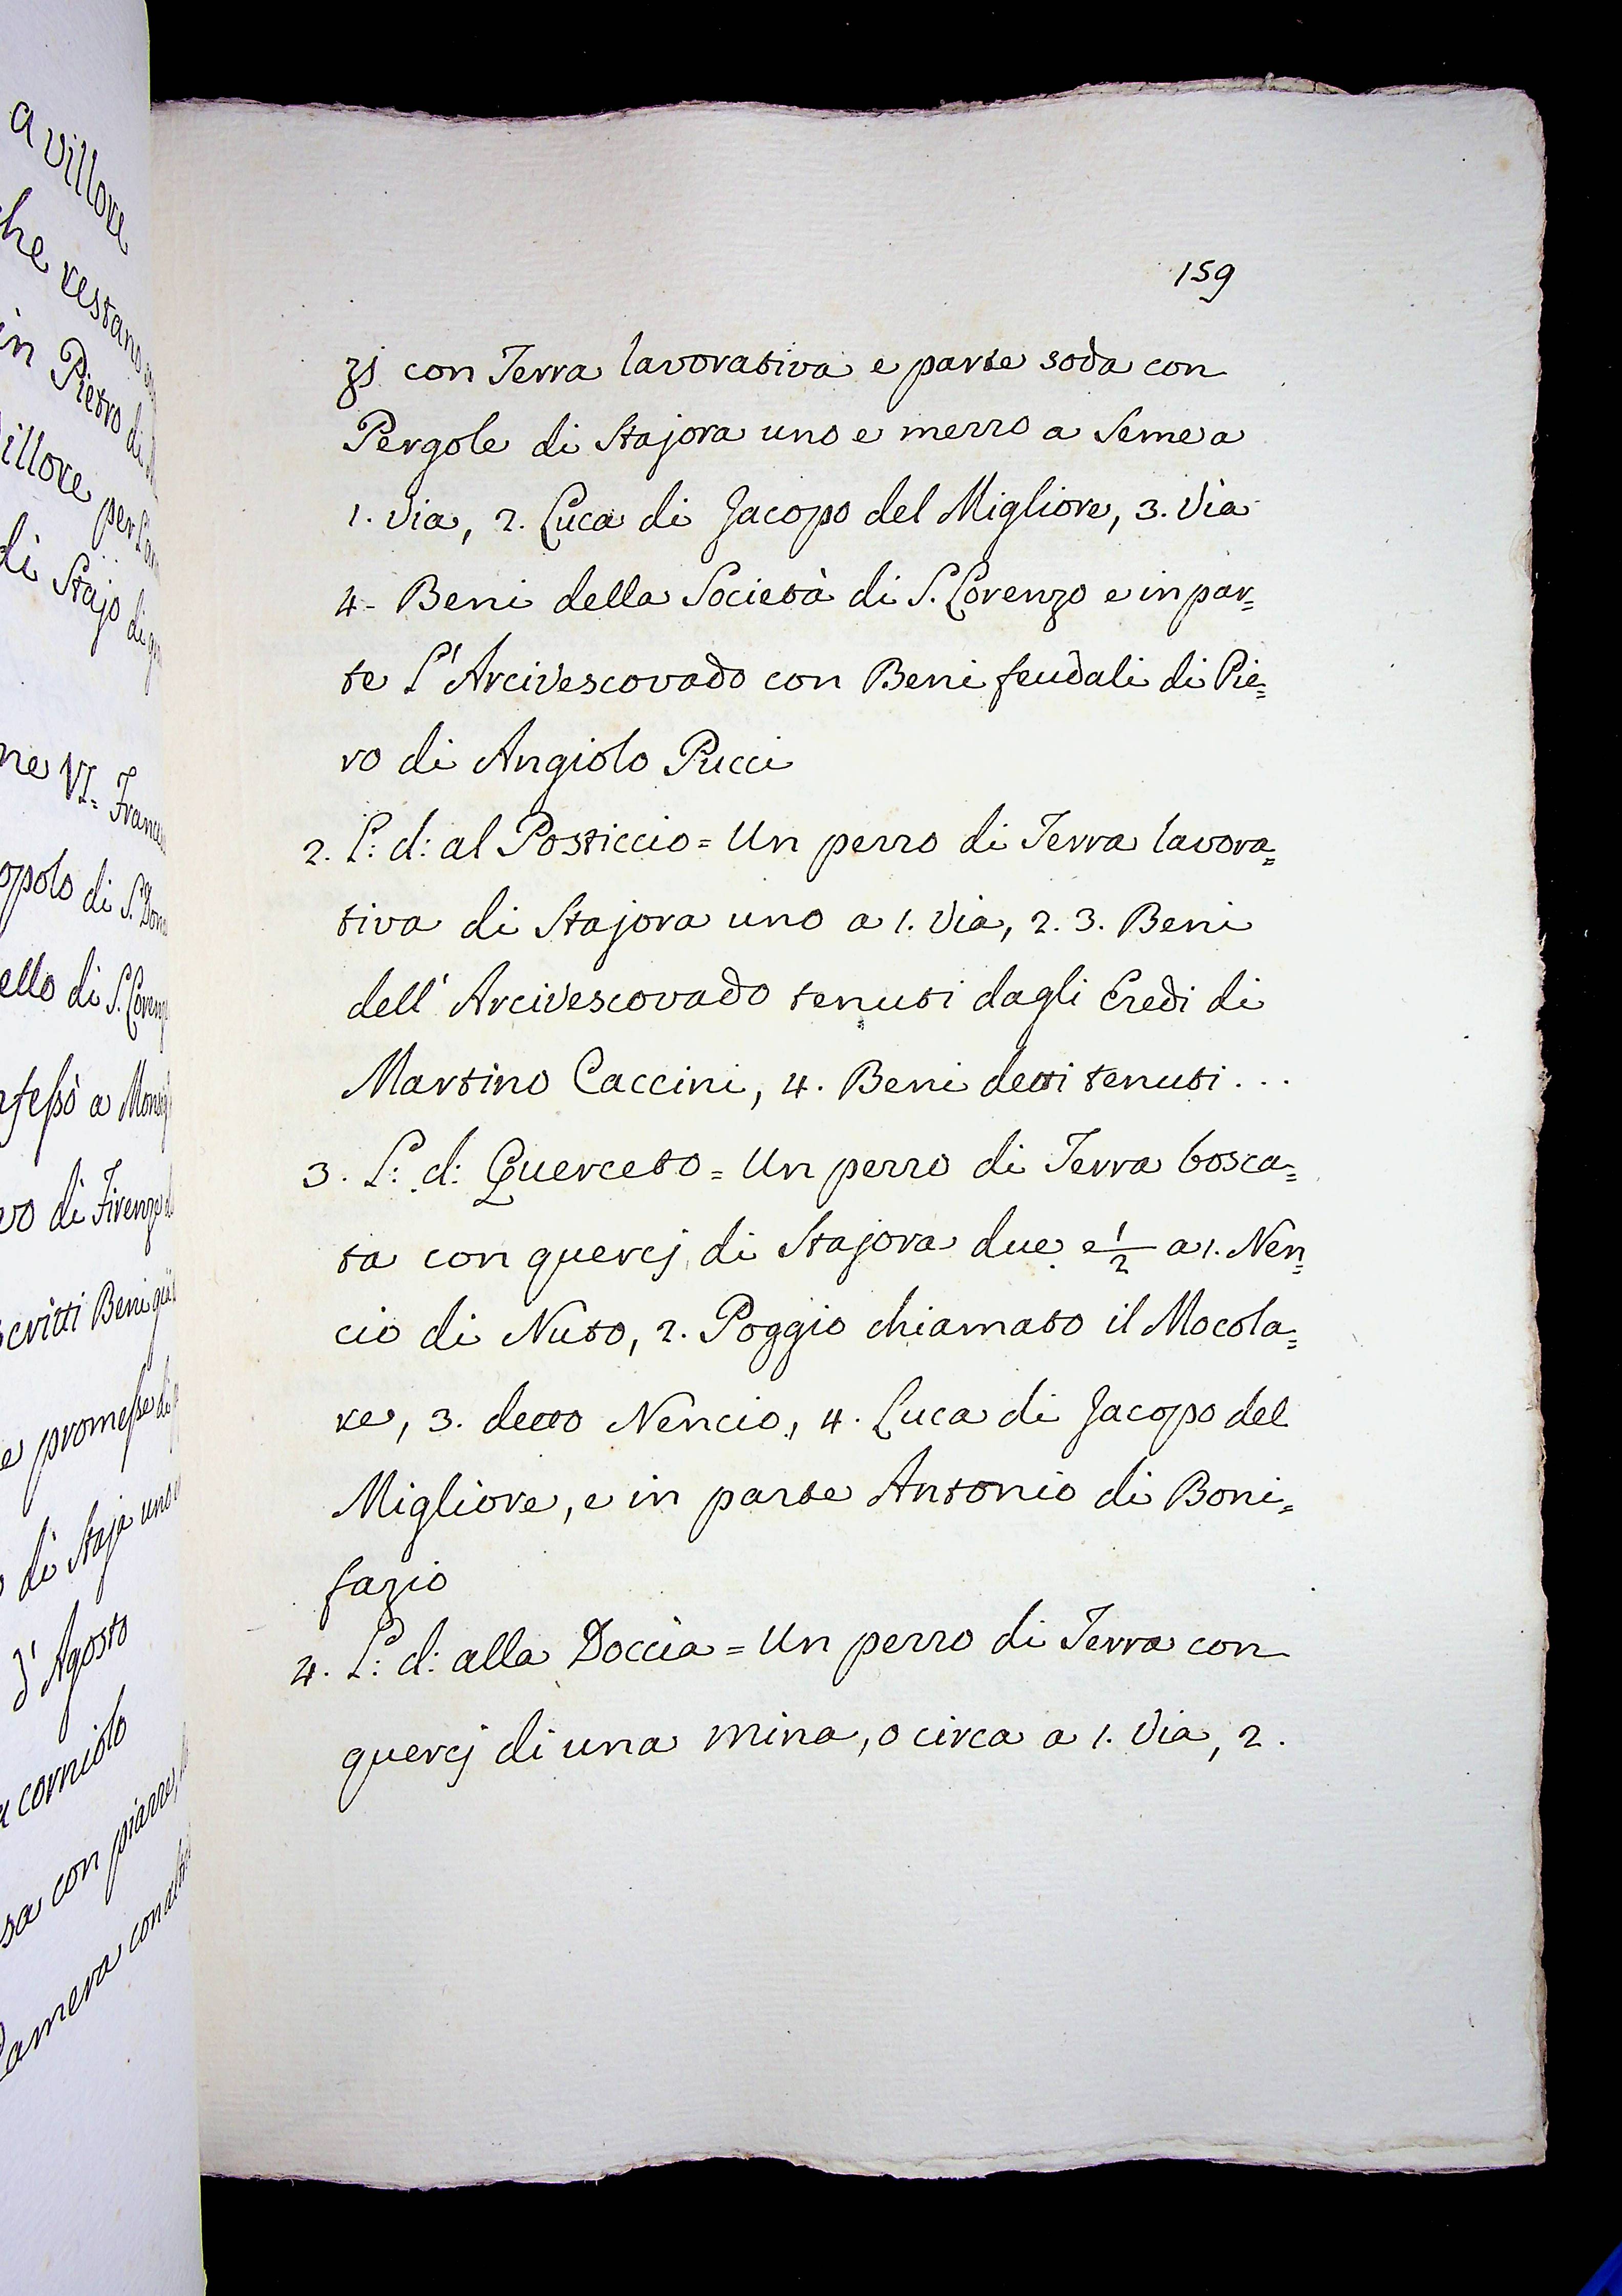 a villore
he restano
in Pietro di
illore per l'an
di Stajo di
ne VI= France
opolo di S. Don
ello di S. Loren
nfessò a Mons
vo di Firenze
scritti Beni
e promesse di
di Staja uno
d' Agosto
a corniolo
sa con piazze,
Camera con altri
159
zj con Terra lavorativa e parte soda con
Pergole di Stajora uno e mezzo a Seme a
1. Via, 2. Luca di Jacopo del Migliore, 3. Via
4- Beni della Società di S. Lorenzo e in par=
te L' Arcivescovado con Beni feudali di Pie=
ro di Angiolo Pucci
2. L: d: al Posticcio = Un pezzo di Terra lavora=
tiva di Stajora uno a 1. Via, 2. 3. Beni
dell' Arcivescovado tenuti dagli Eredi di
Martino Caccini, 4. Beni detti tenuti...
3. L: d: Querceto = Un pezzo di Terra bosca=
ta con quercj di Stajora due e 1/2 a 1. Nen=
cio di Nuto, 2. Poggio chiamato il Mocola=
re, 3. detto Nencio, 4. Luca di Jacopo del
Migliore, e in parte Antonio di Boni=
fazio
4. L: d: alla Doccia = Un pezzo di Terra con
quercj di una mina, o circa a 1. Via, 2.